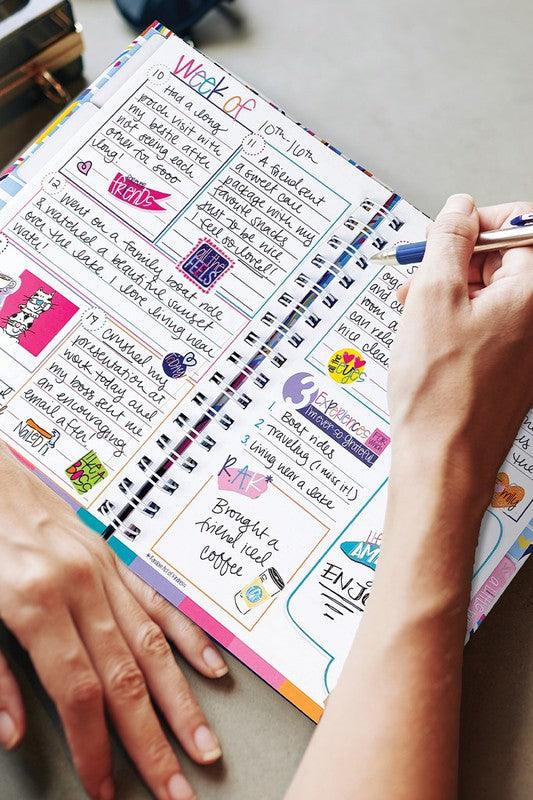 week of
10th-16th
10
Had a long
porch visit with
my bestie after
not seeing each
other for sooo
long!
FRIENDS
11
A friend sent
a sweet care
package with my
favorite snacks
just to be nice
I feel so loved!
all the
FEELS
12
Went on a family boat ride
& watched a beautiful sunset
over the lake. I love living near
water!
14
Crushed my
presentation at
work today and
my boss sent me
an encouraging
email after!
Nailed it
LIKE A
BOSS
room a
can rela
nice clea
all the
eyes
3
Experiences
I'm over so grateful
1. Boat rides
2. Traveling (I miss it!)
3. Living near a lake
RAK*
Brought a
friend iced
coffee
*Random Act of Kindness
LIFE
AMA
ENJO
family
a little